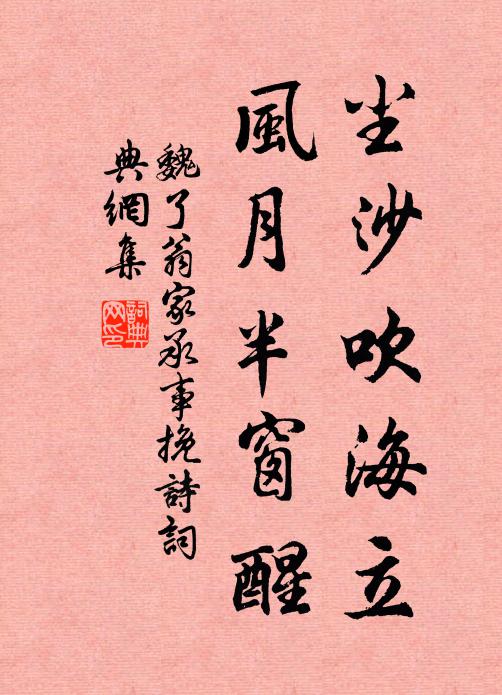 尘沙吹海立
風月半窗醒
魏了翁家承事挽詩詞
典網集
詞典
网印